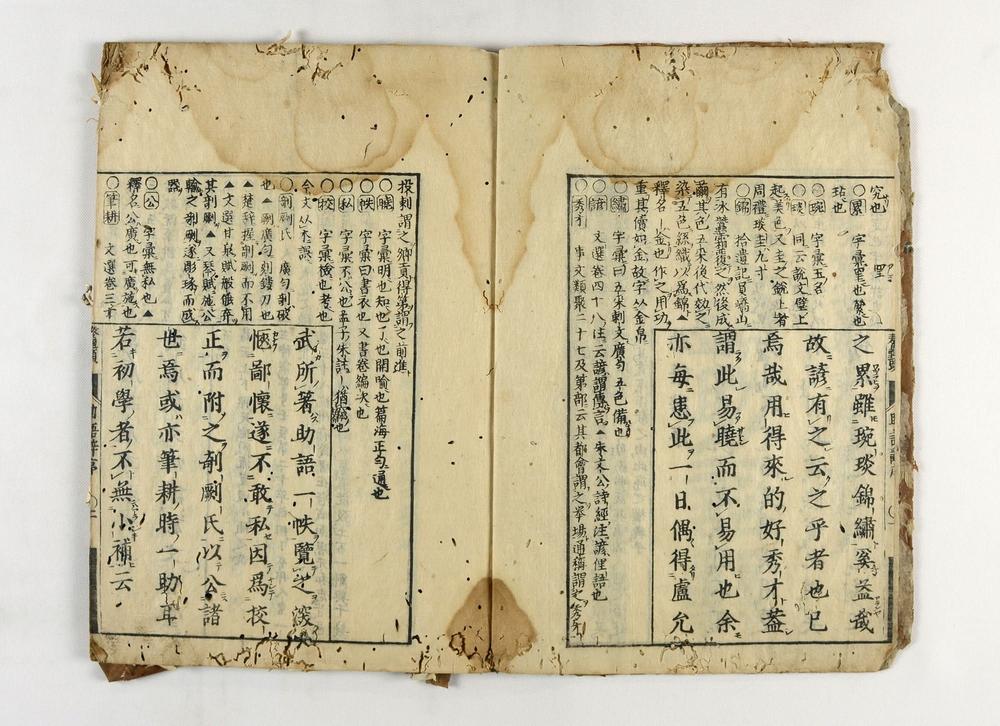 究也
○累 字彙罣也縈也
玷也
○琬 字彙五名
○琰 同云説文璧上
起美色又圭之鋭上者
周禮琰圭九寸
○錦 拾遺記員嶠山
有氷蠶霜覆之然後成
繭其色五采後代效之
染五色絲織以爲錦▲
釋名金也作之用功
重其價如金故字从金帛
○繡 字彙曰五采刺文廣勻五色備也
○諺 文選卷四十八注云諺謂傳言▲朱文公詩經注諺俚語也
○秀才 事文類聚二十七及第部云其都會謂之擧場通稱謂之秀才
之累雖琬琰錦繡奚益哉
故諺有之云之乎者也已
焉哉用得來的好秀才蓋
謂此易曉而不易用也余
亦每患此一日偶得盧允
投刺謂之鄉貢得第謂之前進
字彙明也知也了也開喩也篇海正勻通也
○帙 字彙曰書衣也又書卷編次也
○私 字彙不公也孟子朱註猶竊也
○挍 字彙檢也考也
今文从木誤
○剞劂氏 廣勻剞破
也▲劂廣勻刻鏤刀也
▲楚辭握剞劂而不用
▲文選甘泉賦般倕弃
其剞劂▲又琴賦施公
輸之剞劂遂彫琢而成
器
○公 字彙無私也▲
釋名公廣也可廣施也
○筆耕 文選卷三十
武所著助語一帙覽之深
愜鄙懷遂不敢私因爲挍
正而附之剞劂氏以公諸
世焉或亦筆耕時一助耳
若初學者不無小補云